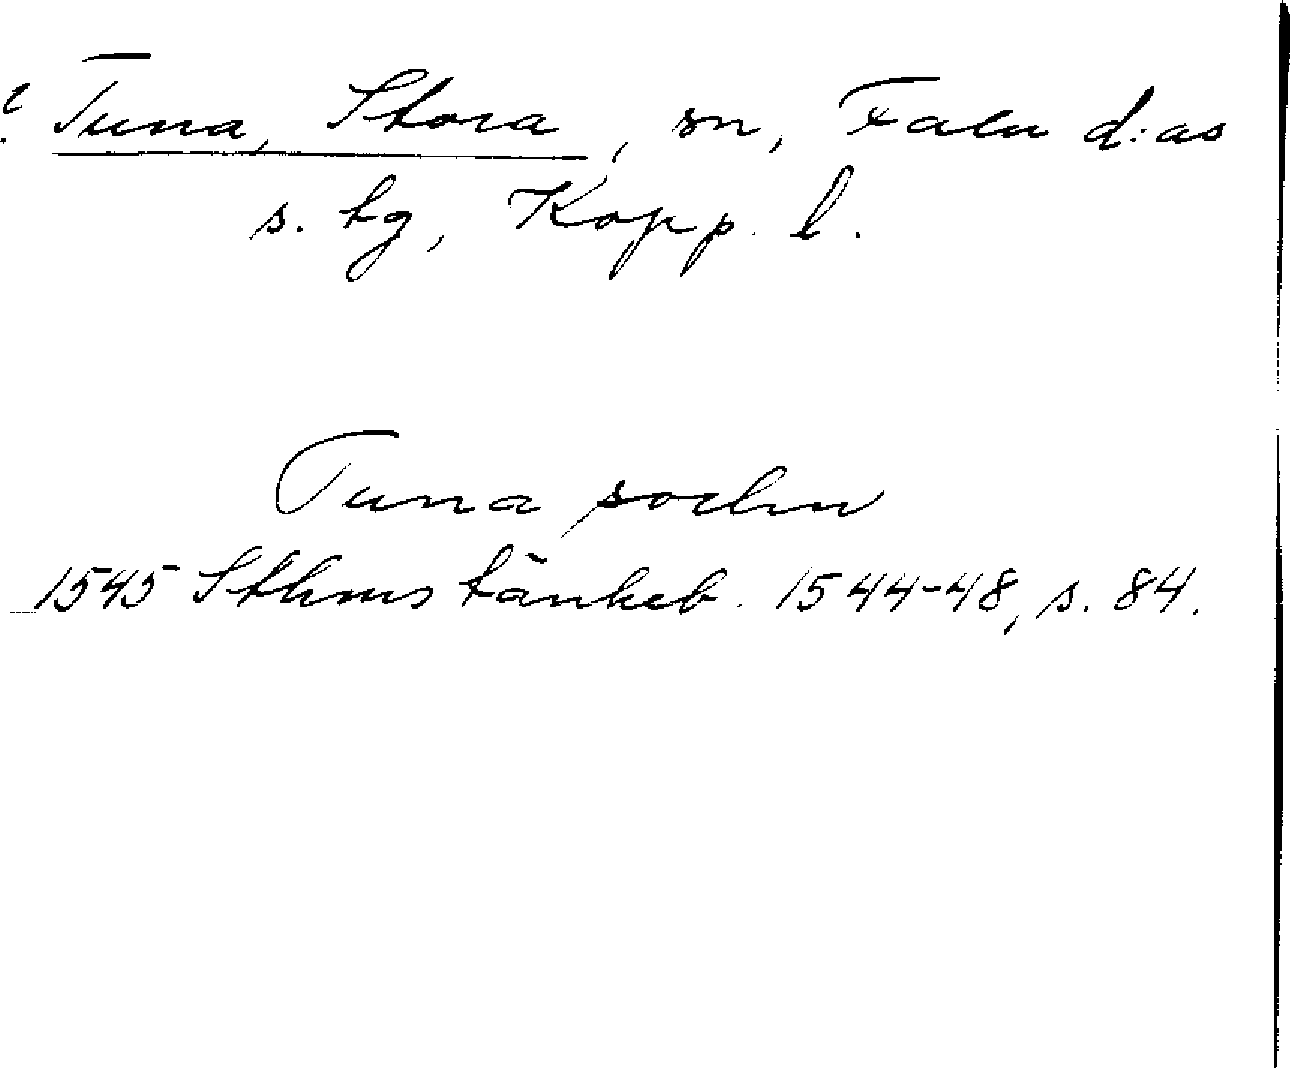 ? Tuna, Stora, sn, Falu d:as
s. tg, Kopp. l.
Tuna sochn
1545 Sthms tänkeb. 1544-48, s. 84.